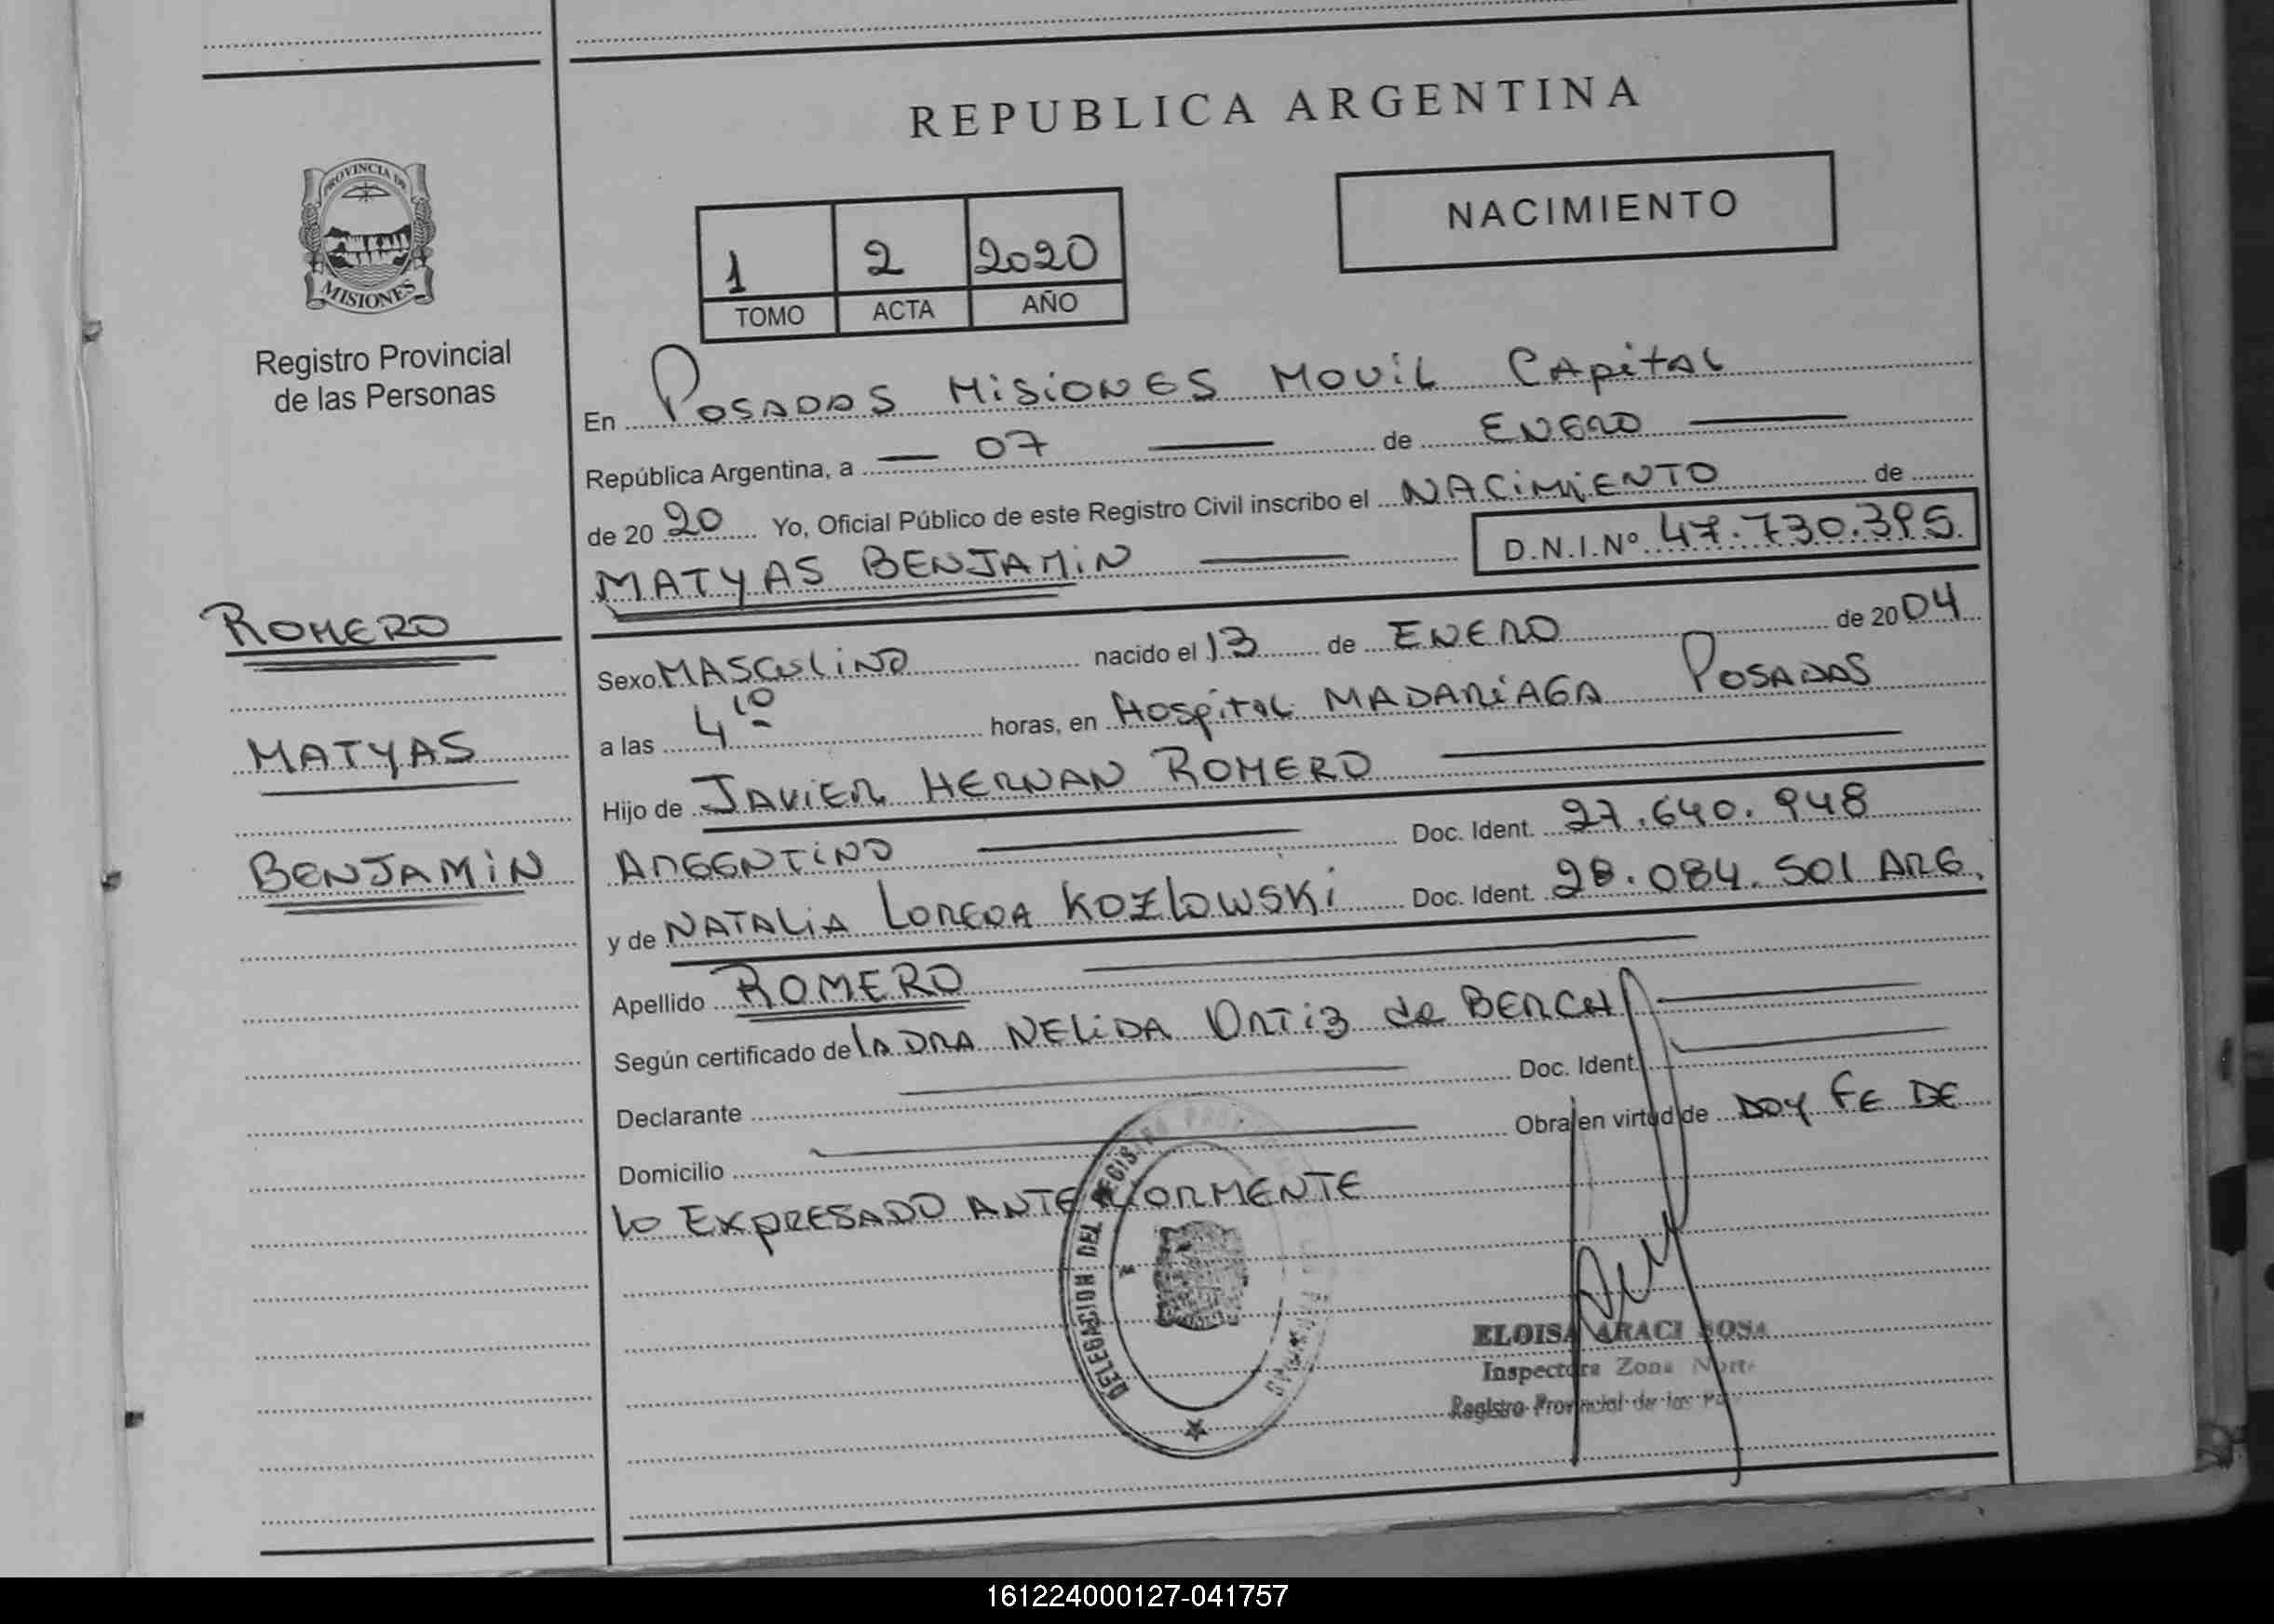 REPUBLICA ARGENTINA
PROVINCIA DE
MISIONES
Registro Provincial
de las Personas
NACIMIENTO
1 2 2020
TOMO ACTA AÑO
En POSADAS MISIONES MOVIL CAPITAL
República Argentina, a 07 de ENERO
de 20 20 Yo, Oficial Público de este Registro Civil inscribo el NACIMIENTO de
MATYAS BENJAMIN D.N.I.Nº 47.730.395
ROMERO
MATYAS
BENJAMIN
Sexo MASCULINO nacido el 13 de ENERO de 20 04
a las 4 10 horas, en HOSPITAL MADARIAGA POSADAS
Hijo de JAVIER HERNAN ROMERO
ARGENTINO Doc. Ident. 27.640.948
y de NATALIA LORENA KOZLOWSKI Doc. Ident. 28.084.501 ARG.
Apellido ROMERO
Según certificado de LA DRA NELIDA ORTIZ de BERCH
Declarante Doc. Ident.
Domicilio Obra en virtud de DOY FE DE
LO EXPRESADO ANTERIORMENTE
DELEGACION DEL REGISTRO
ELOISA ARACI SOSA
Inspectora Zona Norte
Registro Provincial de las
161224000127-041757